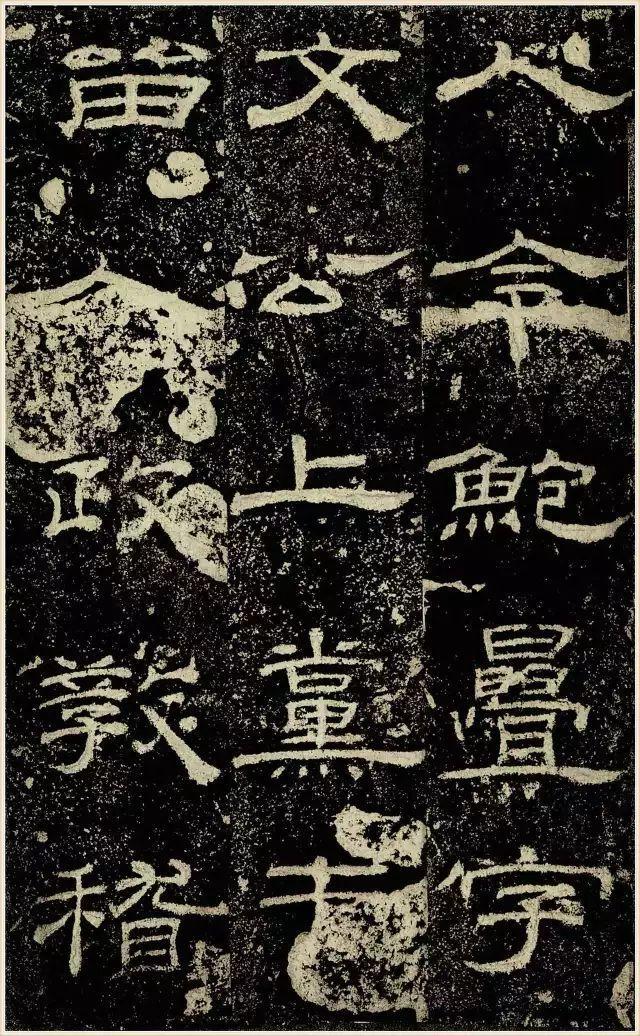 人令鮑疊字
文公上黨屯
留人政教稽